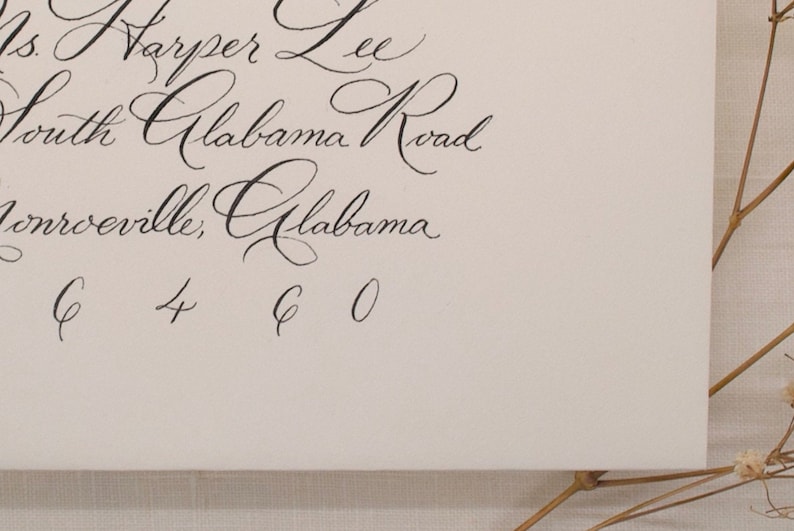 Ms. Harper Lee
South Alabama Road
Monroeville, Alabama
6 4 6 0